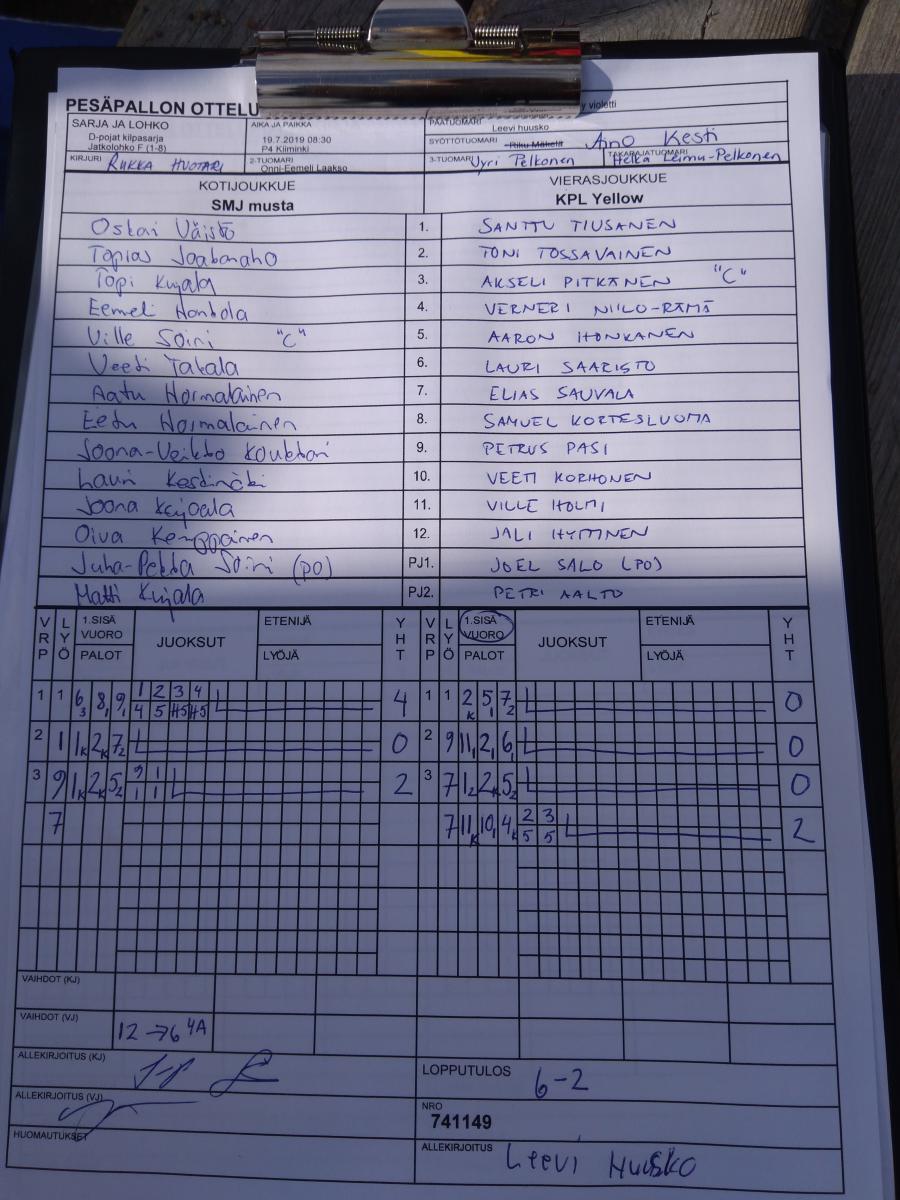 PESÄPALLON OTTELU
y violetti
SARJA JA LOHKO
D-pojat kilpasarja
Jatkolohko F (1-8)
AIKA JA PAIKKA
19.7.2019 08:30
P4 Kiiminki
PÄÄTUOMARI
Leevi huusko
SYÖTTÖTUOMARI Riku Mäkelä Aino Kesti
KIRJURI RIIKKA HUOTARI
2-TUOMARI
Onni-Eemeli Laakso
3-TUOMARI Jyri Pelkonen
TAKARAJATUOMARI
Helka Leimu-Pelkonen
KOTIJOUKKUE
SMJ musta
VIERASJOUKKUE
KPL Yellow
Oskari Väistö 1. SANTTU TIUSANEN
Topias 2. TONI TOSSAVAINEN
Topi Kujala 3. AKSELI PITKÄNEN "C"
Eemeli Hantola 4. VERNERI NIILO-RÄMÄ
Ville Soini "C" 5. AARON HONKANEN
Veeti Takala 6. LAURI SAARISTO
Aatu Hormalainen 7. ELIAS SAUVALA
Eetu Hormalainen 8. SAMUEL KORTESLUOMA
Joona-Veikko 9. PETRUS PASI
Lauri 10. VEETI KORHONEN
Joona 11. VILLE HOLMI
Oiva Kemppainen 12. JALI HYTTINEN
Juha-Pekka Soini (PO) PJ1. JOEL SALO (PO)
Matti Kujala PJ2. PETRI AALTO
VRP LYÖ 1.SISÄ VUORO PALOT JUOKSUT ETENIJÄ LYÖJÄ YHT VRP LYÖ 1.SISÄ VUORO PALOT JUOKSUT ETENIJÄ LYÖJÄ YHT
1 1 6 3 8 1 9 1 1 2 3 4 4 1 1 2 K 5 1 7 2 0
4 5 45 45
2 1 1 K 2 K 7 2 0 2 9 11 1 2 1 6 1 0
3 9 1 K 2 K 5 2 9 1 2 3 7 1 2 2 K 5 2 0
1 1
7 7 11 K 10 1 4 K 2 3 2
5 5
VAIHDOT (KJ)
VAIHDOT (VJ) 12 → 6 4A
ALLEKIRJOITUS (KJ)
LOPPUTULOS 6-2
ALLEKIRJOITUS (VJ)
NRO
741149
HUOMAUTUKSET
ALLEKIRJOITUS Leevi Huusko